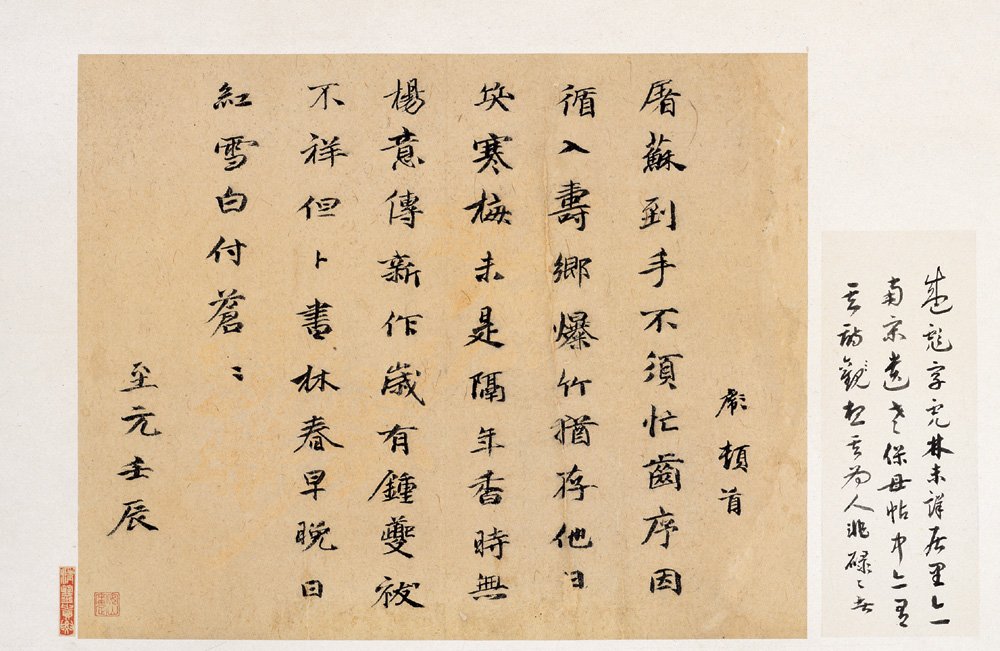 盛彪字虎林未詳居里亦
南宋遺老保母帖中亦有
其詩觀想其為人非碌〻者
彪頓首
屠蘇到手不須忙齒序因
循入壽鄉爆竹猶存他日
笑寒梅未是隔年香時無
楊意傳新作歲有鍾夔祓
不祥但卜書林春早晚日
紅雪白付蒼〻
至元壬辰